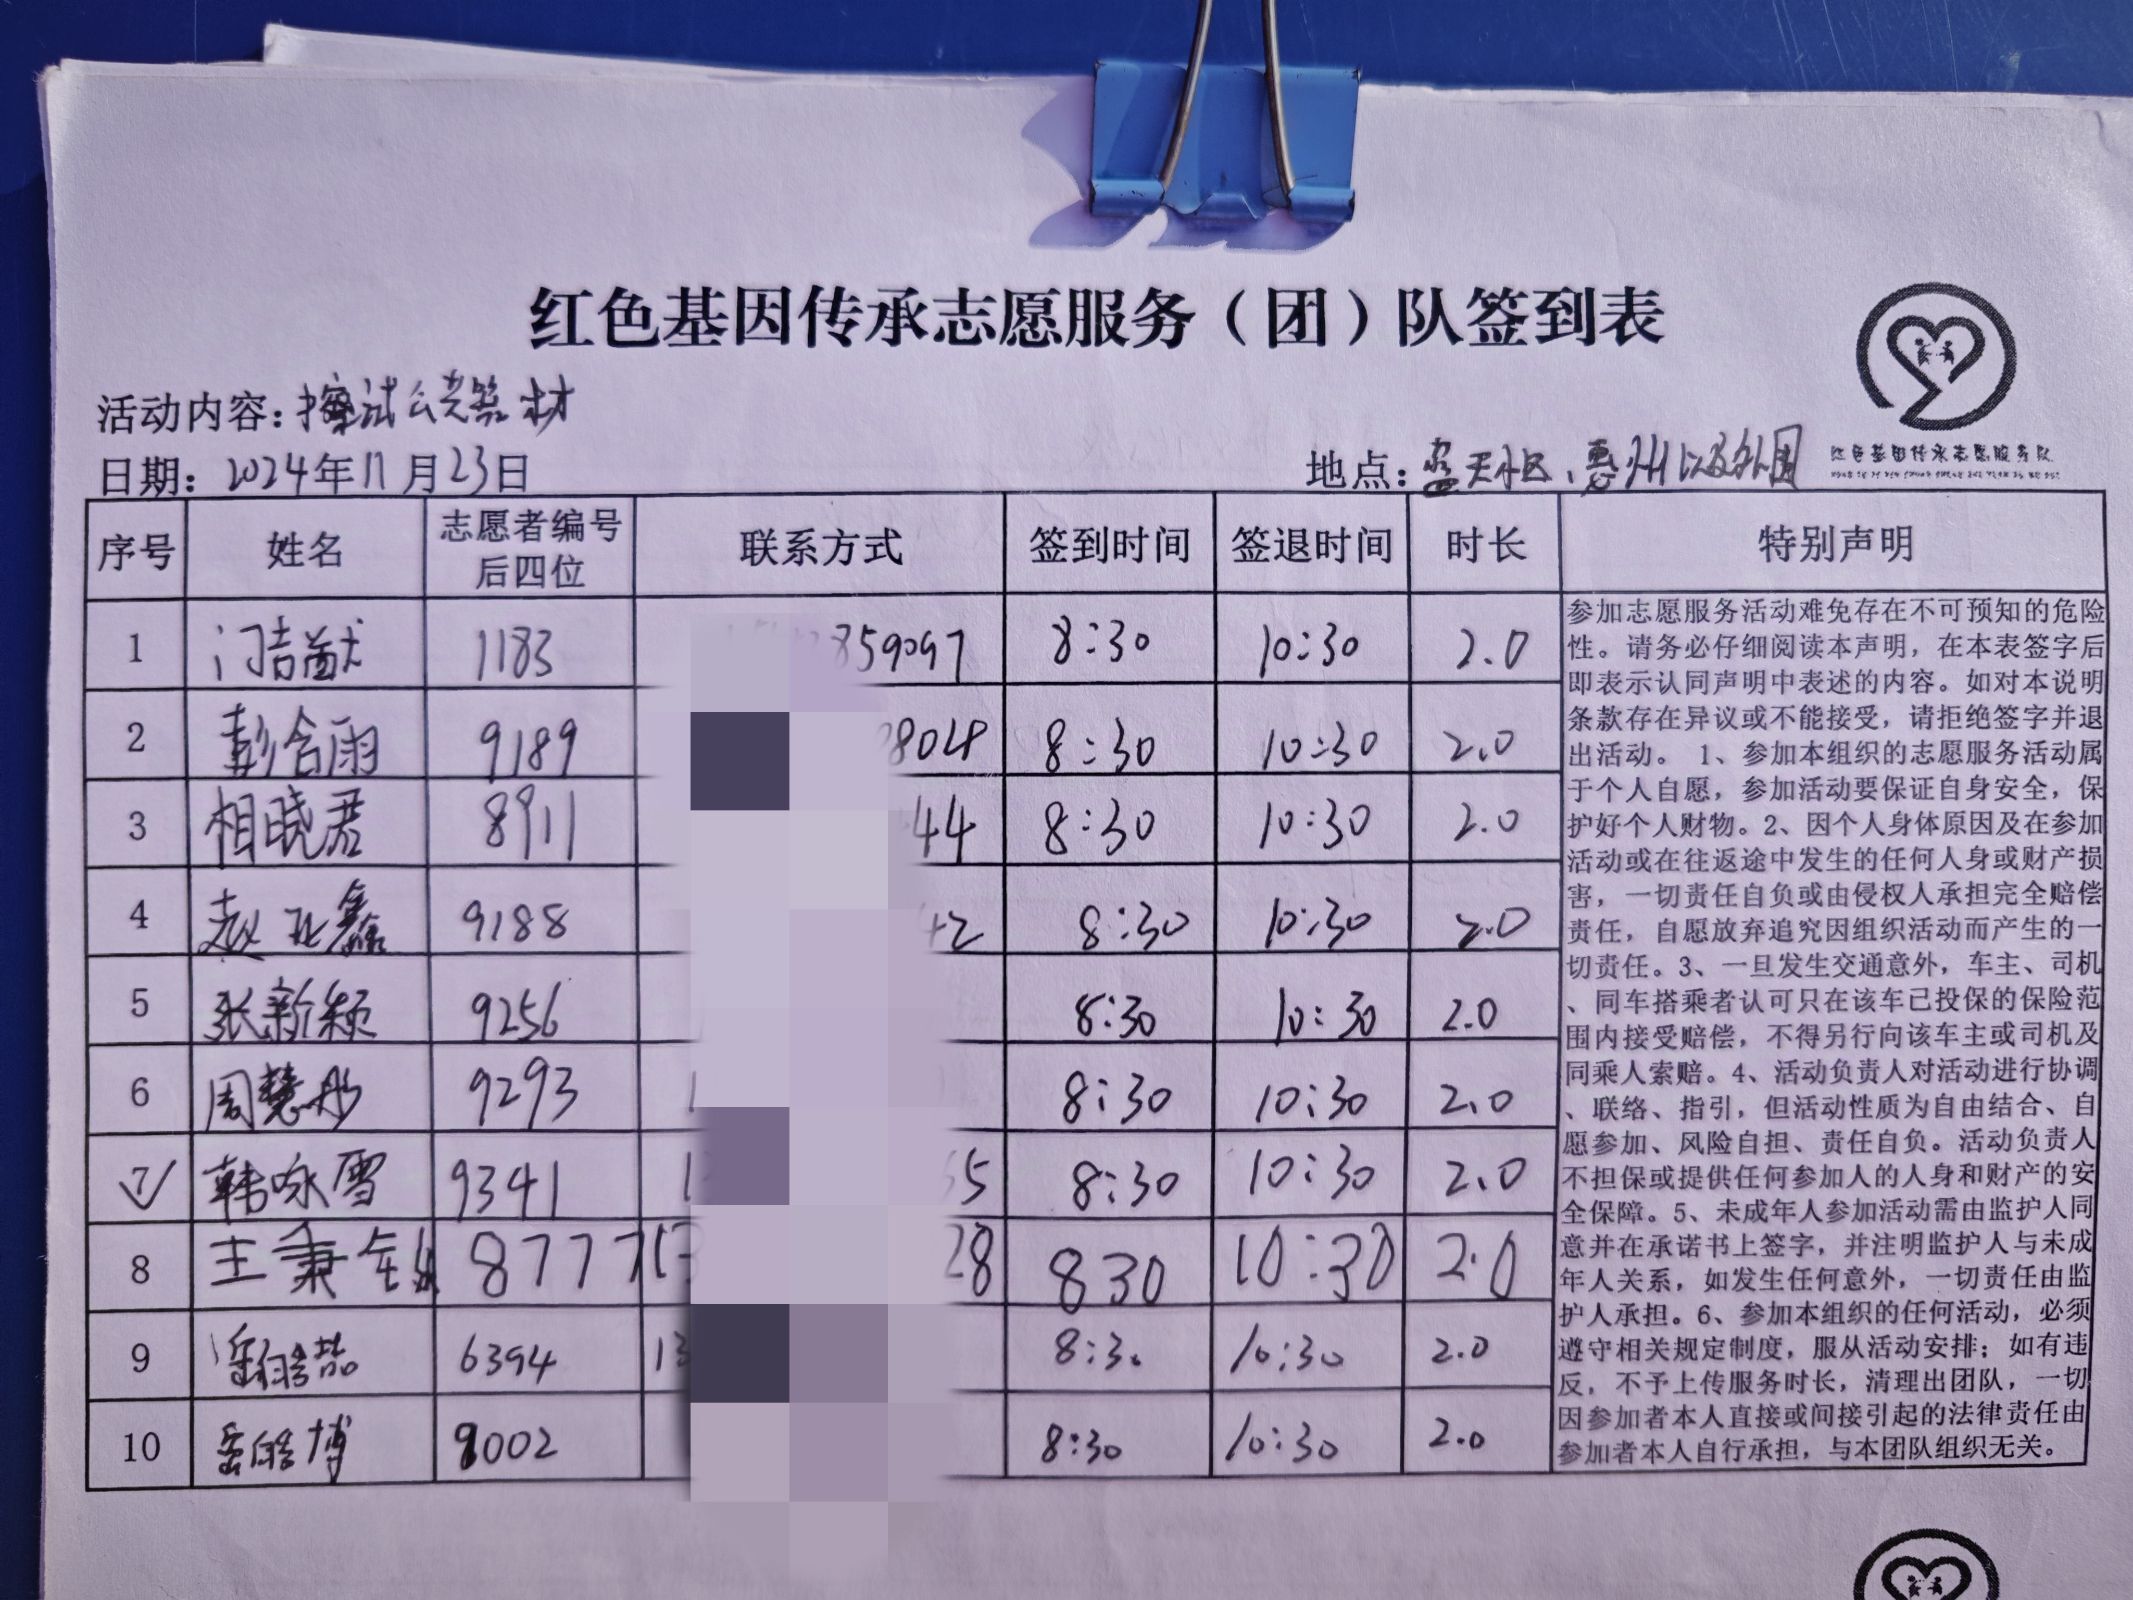 红色基因传承志愿服务（团）队签到表
活动内容：擦试公共器材
日期：2024年11月23日 地点：蓝天小区、惠州以及外围
红色基因传承志愿服务队
序号 姓名 志愿者编号后四位 联系方式 签到时间 签退时间 时长 特别声明
1 门吉猷 1183 859097 8:30 10:30 2.0
2 彭含雨 9189 8048 8:30 10:30 2.0
3 相晓君 8911 44 8:30 10:30 2.0
4 赵 鑫 9188 42 8:30 10:30 2.0
5 张新颖 9256 8:30 10:30 2.0
6 周慧彤 9293 1 8:30 10:30 2.0
7 韩咏雪 9341 1 5 8:30 10:30 2.0
8 王秉 8777 13 28 830 10:30 2.0
9 6394 13 8:30 10:30 2.0
10 岳皓博 9002 8:30 10:30 2.0
参加志愿服务活动难免存在不可预知的危险
性。请务必仔细阅读本声明，在本表签字后
即表示认同声明中表述的内容。如对本说明
条款存在异议或不能接受，请拒绝签字并退
出活动。 1、参加本组织的志愿服务活动属
于个人自愿，参加活动要保证自身安全，保
护好个人财物。2、因个人身体原因及在参加
活动或在往返途中发生的任何人身或财产损
害，一切责任自负或由侵权人承担完全赔偿
责任，自愿放弃追究因组织活动而产生的一
切责任。3、一旦发生交通意外，车主、司机
、同车搭乘者认可只在该车已投保的保险范
围内接受赔偿，不得另行向该车主或司机及
同乘人索赔。4、活动负责人对活动进行协调
、联络、指引，但活动性质为自由结合、自
愿参加、风险自担、责任自负。活动负责人
不担保或提供任何参加人的人身和财产的安
全保障。5、未成年人参加活动需由监护人同
意并在承诺书上签字，并注明监护人与未成
年人关系，如发生任何意外，一切责任由监
护人承担。6、参加本组织的任何活动，必须
遵守相关规定制度，服从活动安排；如有违
反，不予上传服务时长，清理出团队，一切
因参加者本人直接或间接引起的法律责任由
参加者本人自行承担，与本团队组织无关。